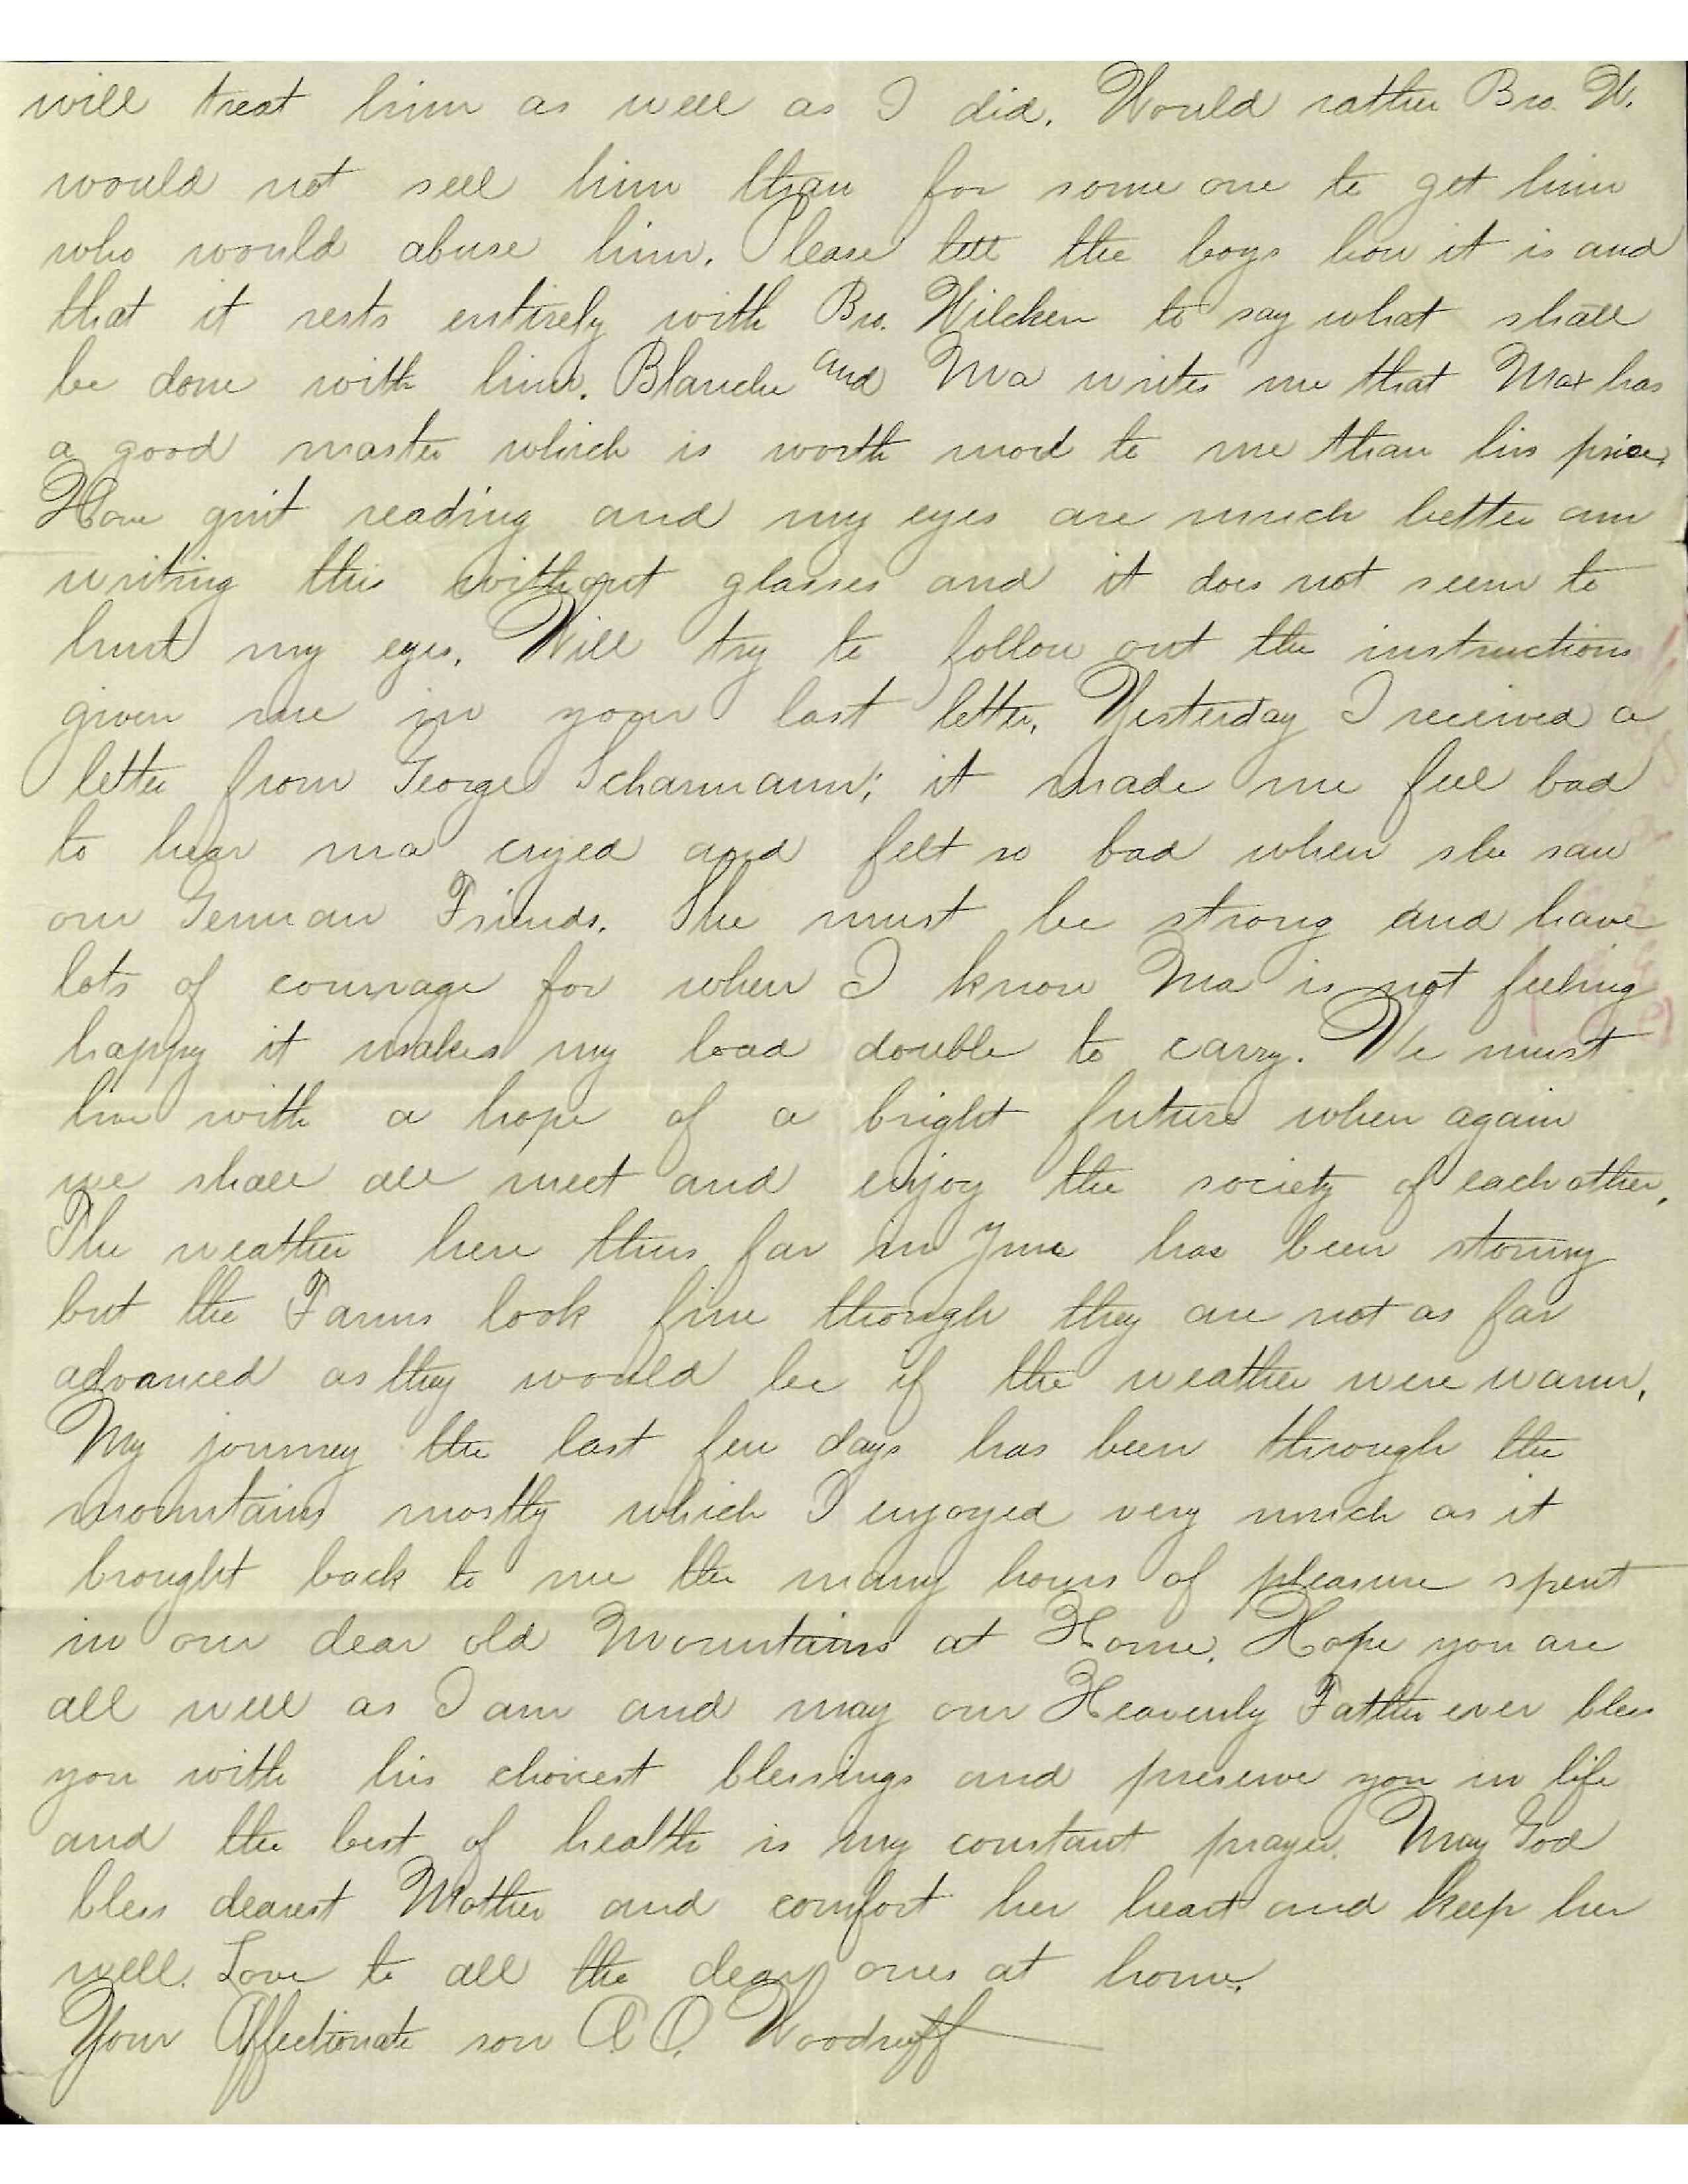 will treat him as well as I did. Would rather Bro. W.
would not sell him than for some one to get him
who would abuse him. Please tell the boys how it is and
that it rests entirely with Bro. Wilcken to say what shall
be done with him. Blanche and Ma writes me that Max has
a good master which is worth mor to me than his price.
Have quit reading and my eyes are much better am
writing this without glasses and it does not seem to
hurt my eyes. Will try to follow out the instructions
given me in your last letter. Yesterday I received a
letter from George Scharmann; it made me feel bad
to hear ma cryed and felt so bad when she saw
our German Friends. She must be strong and have
lots of courage for when I know Ma is not feeling
happy it makes my load double to carry. We must
live with a hope of a bright future when again
we shall all meet and enjoy the society of each other.
The weather here thus far in June has been stormy
but the Farms look fine though they are not as far
advanced as they would be if the weather were warm.
My journey the last few days has been through the
mountains mostly which I enjoyed very much as it
brought back to me the many hours of pleasure spent
in our dear old Mountains at Home. Hope you are
all well as I am and may our Heavenly Father ever bless
you with his choicest blessings and preserve you in life
and the best of health is my constant prayer. May God
bless dearest Mother and comfort her heart and keep her
well. Love to all the dear ones at home.
Your Affectionate son A.O. Woodruff